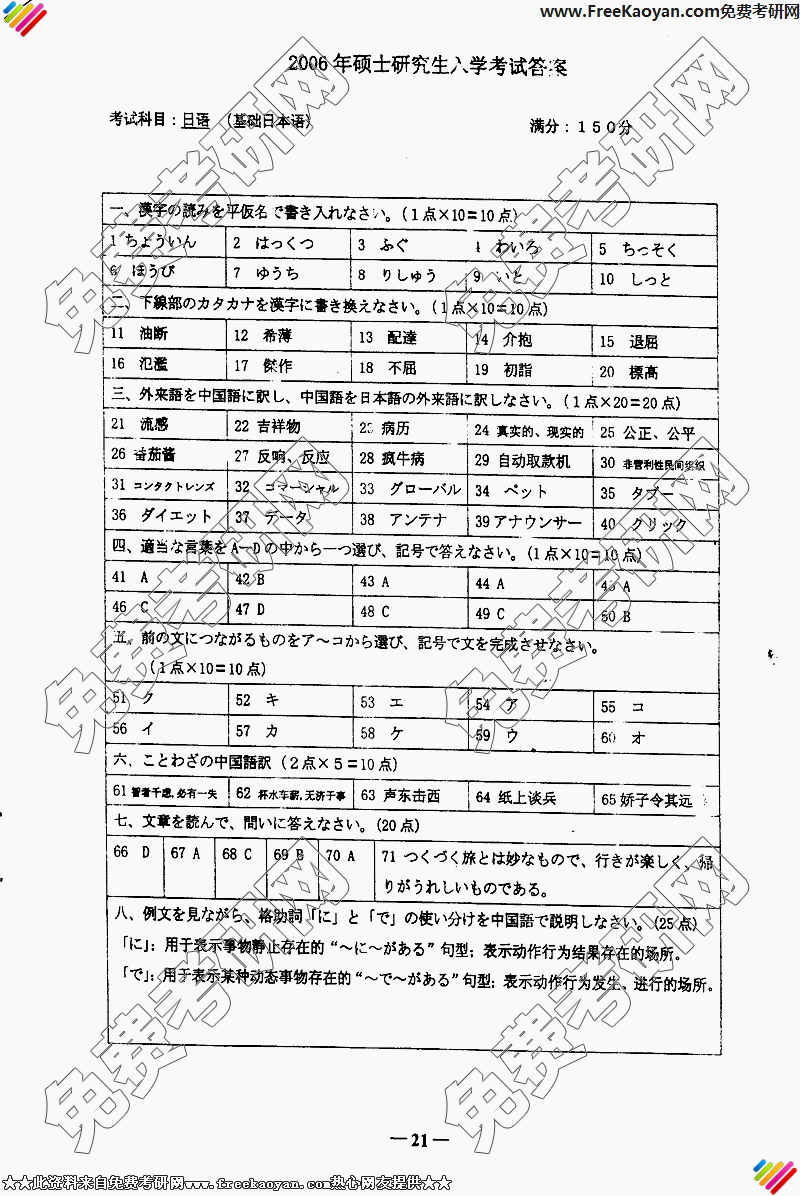 www.FreeKaoyan.com免费考研网
2006年硕士研究生入学考试答案
考试科目：日语 （基础日本语） 满分：１５０分
一、漢字の読みを平仮名で書き入れなさい。(１点×10＝10点)
1 ちょういん 2 はっくつ 3 ふぐ 4 わいろ 5 ちっそく
6 ほうび 7 ゆうち 8 りしゅう 9 いと 10 しっと
二、下線部のカタカナを漢字に書き換えなさい。(１点×10＝10点)
11 油断 12 希薄 13 配達 14 介抱 15 退屈
16 氾濫 17 傑作 18 不屈 19 初詣 20 標高
三、外来語を中国語に訳し、中国語を日本語の外来語に訳しなさい。(１点×20＝20点)
21 流感 22 吉祥物 23 病历 24 真实的、现实的 25 公正、公平
26 番茄酱 27 反响、反应 28 疯牛病 29 自动取款机 30 非营利性民间组织
31 コンタクトレンズ 32 コマーシャル 33 グローバル 34 ペット 35 タブー
36 ダイエット 37 データ 38 アンテナ 39 アナウンサー 40 クリック
四、適当な言葉をA－Dの中から一つ選び、記号で答えなさい。(１点×10＝10点)
41 A 42 B 43 A 44 A 45 A
46 C 47 D 48 C 49 C 50 B
五、前の文につながるものをア～コから選び、記号で文を完成させなさい。
(１点×10＝10点)
51 ク 52 キ 53 エ 54 ア 55 コ
56 イ 57 カ 58 ケ 59 ウ 60 オ
六、ことわざの中国語訳(２点×５＝10点)
61 智者千虑,必有一失 62 杯水车薪,无济于事 63 声东击西 64 纸上谈兵 65 娇子令其远
七、文章を読んで、問いに答えなさい。(20点)
66 D 67 A 68 C 69 B 70 A 71 つくづく旅とは妙なもので、行きが楽しく、帰
りがうれしいものである。
八、例文を見ながら、格助詞「に」と「で」の使い分けを中国語で説明しなさい。(25点)
「に」：用于表示事物静止存在的“～に～がある”句型；表示动作行为结果存在的场所。
「で」：用于表示某种动态事物存在的“～で～がある”句型；表示动作行为发生、进行的场所。
免费考研网
免费考研网
免费考研网
免费考研网
免费考研网
免费考研网
—21—
★★此资料来自免费考研网www.freekaoyan.com热心网友提供★★